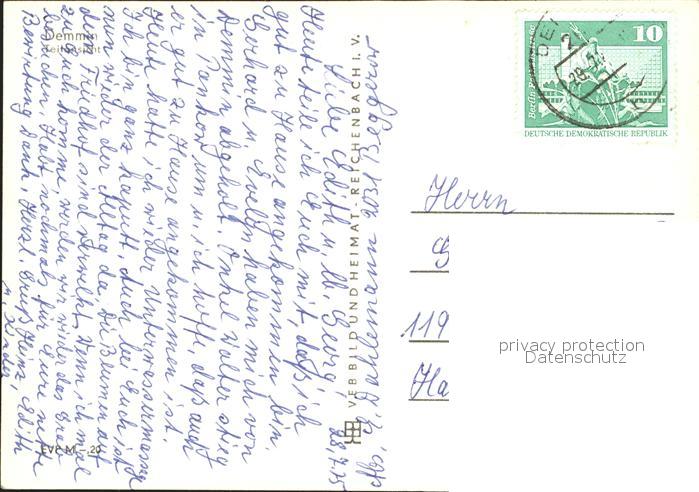 Demmin
Teilansicht
28.7.75
Liebe Edith u. M. Georg!
Heute teile ich Euch mit, daß ich
gut zu Hause angekommen bin.
Gerhard u. Evelyn haben mich von
Demmin abgeholt. Onkel Walter stieg
in Pankow um u. ich hoffe, daß auch
er gut zu Hause angekommen ist.
Heute hatte ich wieder
Ich bin ganz kaputt. Auch bei Euch ist
nun wieder der Alltag da. Die Blumen auf
dem Friedhof sind verwelkt. Wenn ich mal
zu Euch komme, werden wir wieder das Grab
besuchen. Habt nochmals für Eure nette
Bewirtung Dank. Herzl. Grüße Heinz, Edith
u. Kinder
Dahlemann 2031 Beggerow
VEB BILD UND HEIMAT · REICHENBACH I. V.
EVP M –,20
10
DEUTSCHE DEMOKRATISCHE REPUBLIK
Herrn
119
Ha
privacy protection
Datenschutz